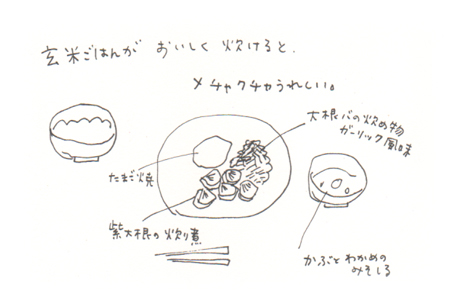 玄米ごはんが おいしく 炊けると、
メチャクチャうれしい。
大根バの炒め物
ガーリック風味
たまご焼
紫大根の炒り煮
かぶとわかめの
みそしる